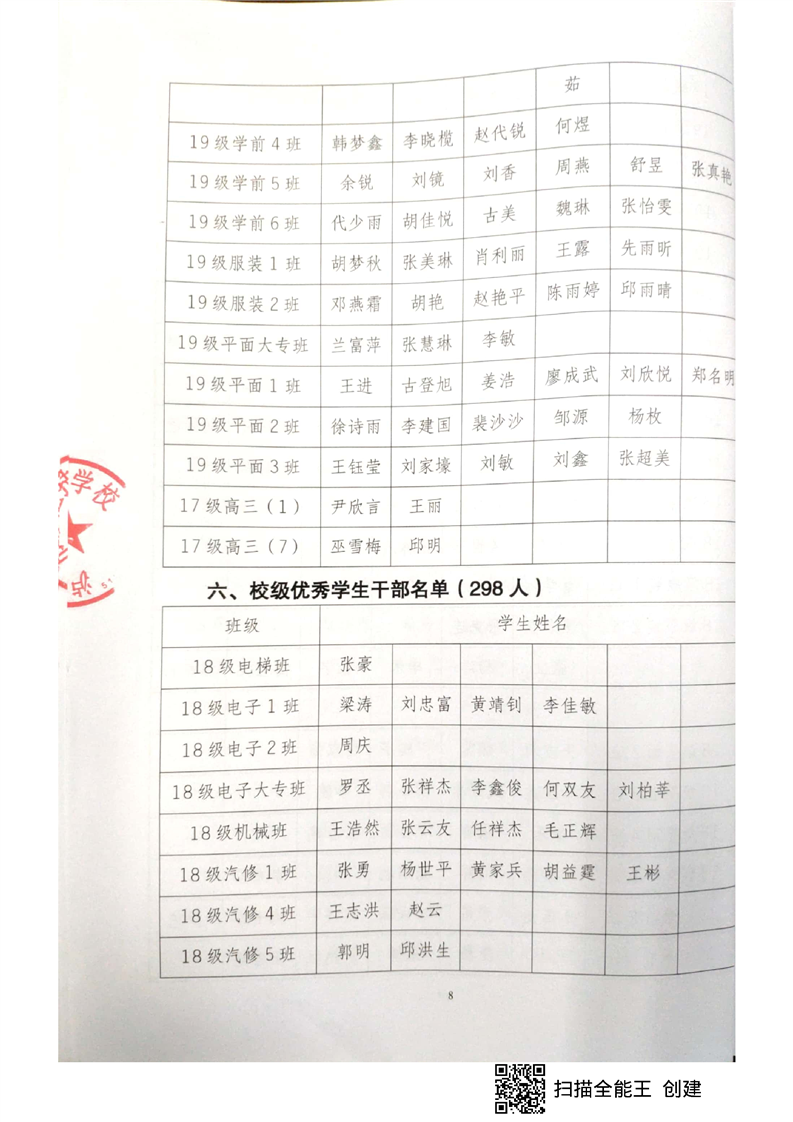 茹
19级学前4班 韩梦鑫 李晓榄 赵代锐 何煜
19级学前5班 余锐 刘镜 刘香 周燕 舒昱 张真艳
19级学前6班 代少雨 胡佳悦 古美 魏琳 张怡雯
19级服装1班 胡梦秋 张美琳 肖利丽 王露 先雨昕
19级服装2班 邓燕霜 胡艳 赵艳平 陈雨婷 邱雨晴
19级平面大专班 兰富萍 张慧琳 李敏
19级平面1班 王进 古登旭 姜浩 廖成武 刘欣悦 郑名明
19级平面2班 徐诗雨 李建国 裴沙沙 邹源 杨枚
19级平面3班 王钰莹 刘家壕 刘敏 刘鑫 张超美
17级高三(1) 尹欣言 王丽
17级高三(7) 巫雪梅 邱明
学校
六、校级优秀学生干部名单(298人)
班级 学生姓名
18级电梯班 张豪
18级电子1班 梁涛 刘忠富 黄靖钊 李佳敏
18级电子2班 周庆
18级电子大专班 罗丞 张祥杰 李鑫俊 何双友 刘柏莘
18级机械班 王浩然 张云友 任祥杰 毛正辉
18级汽修1班 张勇 杨世平 黄家兵 胡益霆 王彬
18级汽修4班 王志洪 赵云
18级汽修5班 郭明 邱洪生
8
扫描全能王 创建